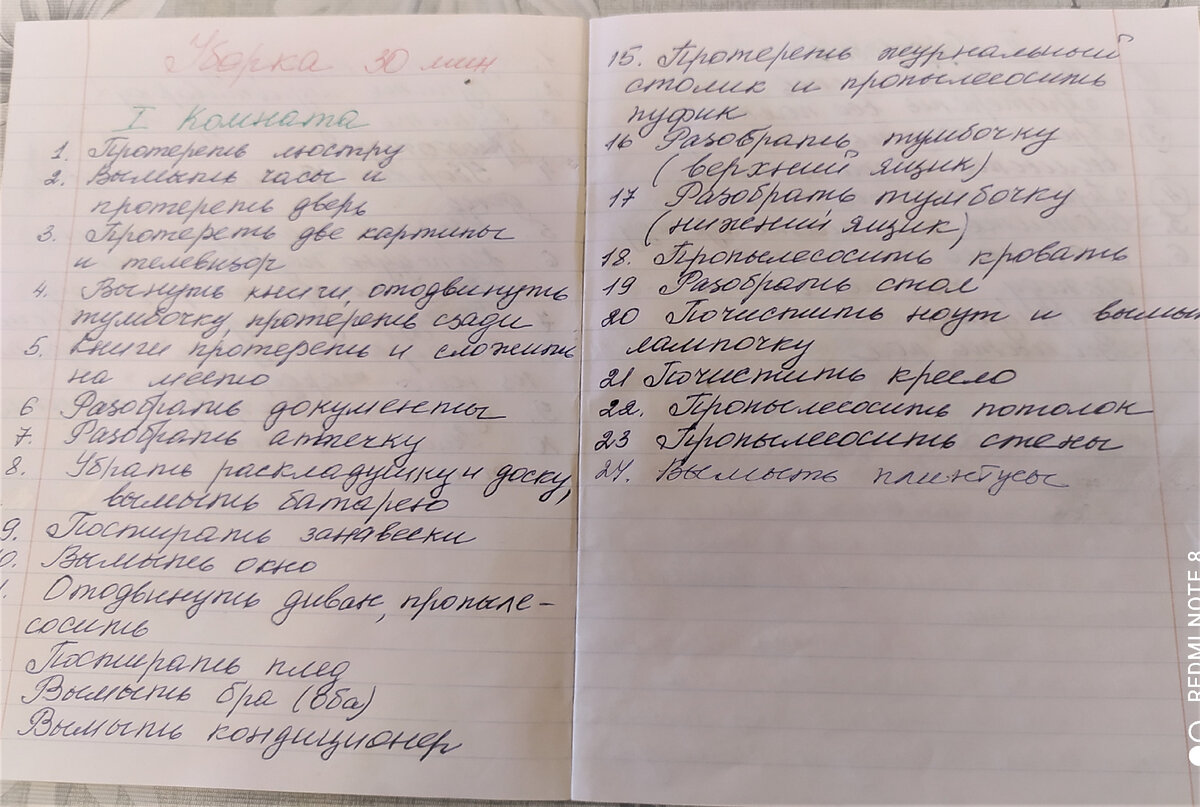 Уборка 30 мин
I Комната
1. Протереть люстру
2. Вымыть часы и
протереть дверь
3. Протереть две картины
и телевизор
4. Вынуть книги, отодвинуть
тумбочку, протереть сзади
5. Книги протереть и сложить
на место
6 Разобрать документы
7. Разобрать аптечку
8. Убрать раскладушку и доску,
вымыть батарею
9. Постирать занавески
0. Вымыть окно
. Отодвинуть диван, пропыле-
сосить
Постирать плед
Вымыть бра (оба)
Вымыть кондиционер
15. Протереть журнальный
столик и пропылесосить
пуфик
16 Разобрать тумбочку
(верхний ящик)
17 Разобрать тумбочку
(нижний ящик)
18. Пропылесосить кровать
19 Разобрать стол
20 Почистить ноут и вымы
лампочку
21 Почистить кресло
22. Пропылесосить потолок
23 Пропылесосить стены
24. Вымыть плинтусы
REDMI NOTE 8